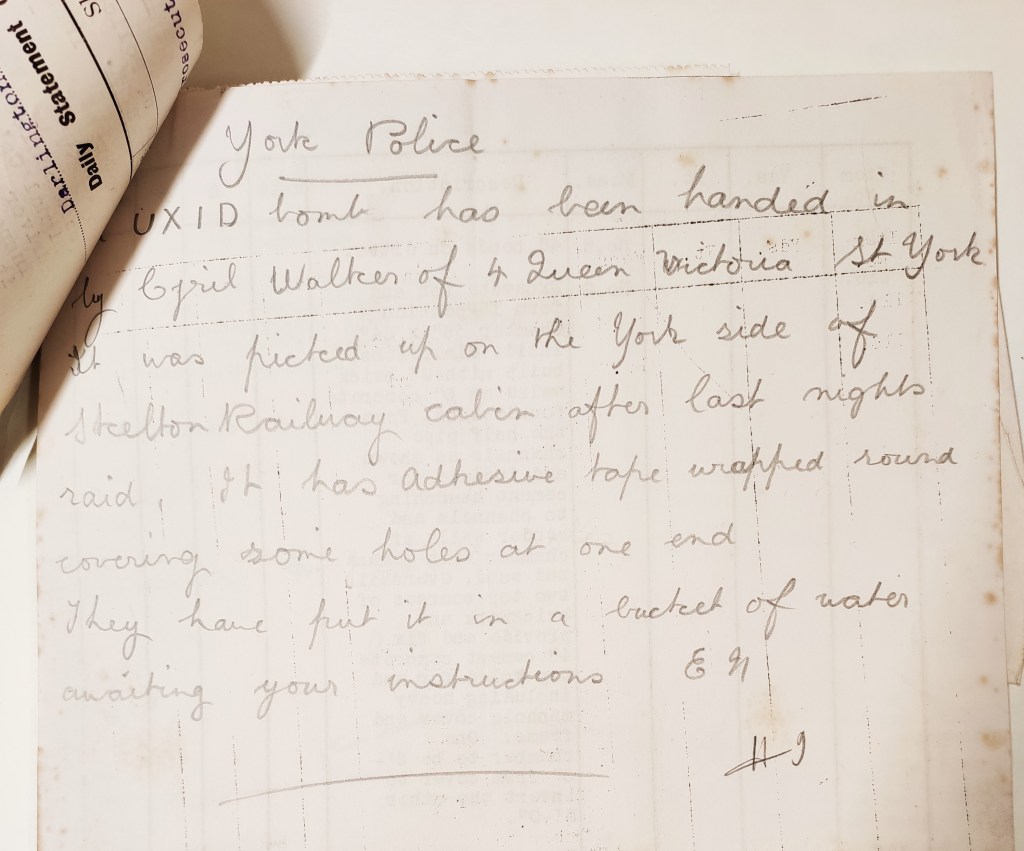 Daily Statement
Darlington
York Police
UXID bomb has been handed in
by Cyril Walker of 4 Queen Victoria St York
it was picked up on the York side of
Skelton Railway cabin after last nights
raid, It has adhesive tape wrapped round
covering some holes at one end
They have put it in a bucket of water
awaiting your instructions